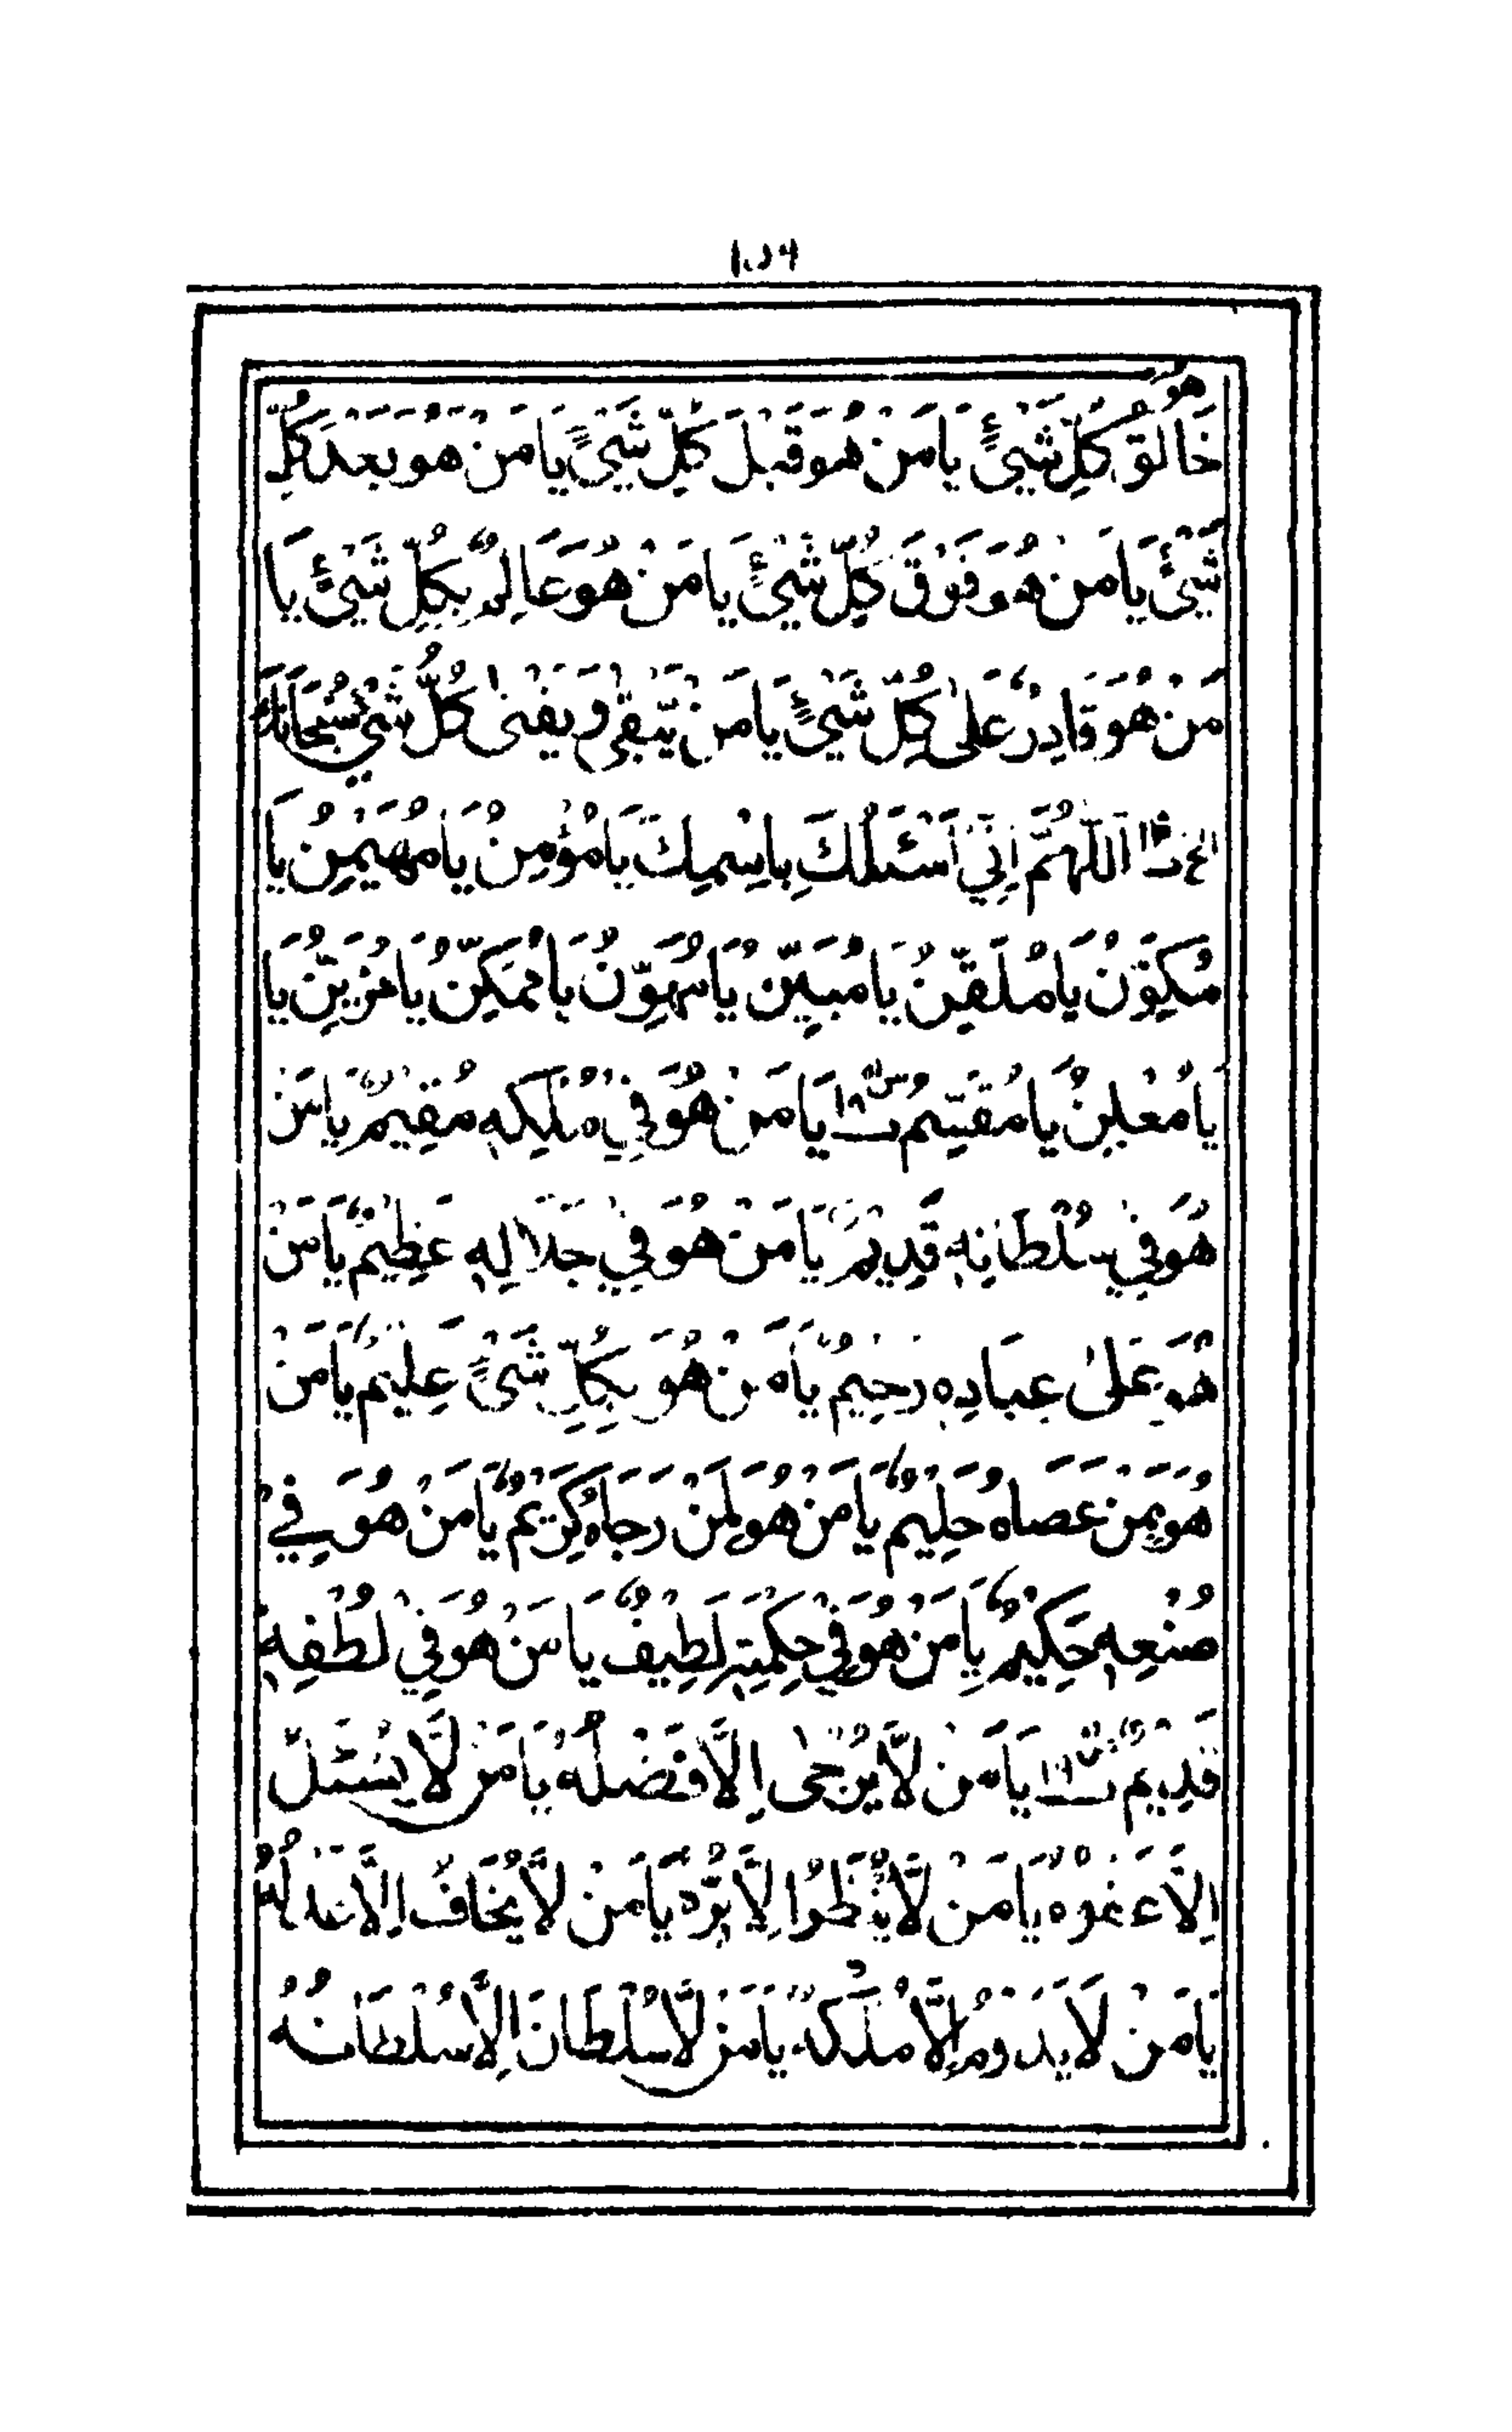 هُوَ
خَالِقُ كُلِّ شَيْئٍ يَا مَنْ هُوَ قَبْلَ كُلِّ شَيْئٍ يَا مَنْ هُوَ بَعْدَ كُلِّ
شَيْئٍ يَا مَنْ هُوَ فَوْقَ كُلِّ شَيْئٍ يَا مَنْ هُوَ عَالِمٌ بِكُلِّ شَيْئٍ يَا
مَنْ هُوَ قَادِرٌ عَلىٰ كُلِّ شَيْئٍ يَا مَنْ يَّبْقىٰ وَ يَفْنىٰ كُلُّ شَيْئٍ سُبْحَانَكَ
الخ اَللّٰهُمَّ اِنِّيْ اَسْئَلُكَ بِاسْمِكَ يَا مُؤْمِنُ يَا مُهَيْمِنُ يَا
مُكَوِّنُ يَا مُلَقِّنُ يَا مُبَيِّنُ يَا مُهَوِّنُ يَا مُمَكِّنُ يَا مُزَيِّنُ يَا
يَا مُعْلِنُ يَا مُقَسِّمُ يَا مَنْ هُوَ فِيْ مُلْكِهٖ مُقِيْمٌ يَا مَنْ
هُوَ فِيْ سُلْطَانِهٖ قَدِيْمٌ يَا مَنْ هُوَ فِيْ جَلَالِهٖ عَظِيْمٌ يَا مَنْ
هُوَ عَلىٰ عِبَادِهٖ رَحِيْمٌ يَا مَنْ هُوَ بِكُلِّ شَىْءٍ عَلِيْمٌ يَا مَنْ
هُوَ بِمَنْ عَصَاهُ حَلِيْمٌ يَا مَنْ هُوَ لِمَنْ رَجَاهُ كَرِيْمٌ يَا مَنْ هُوَ فِيْ
صُنْعِهٖ حَكِيْمٌ يَا مَنْ هُوَ فِيْ حِكْمَتِهٖ لَطِيْفٌ يَا مَنْ هُوَ فِيْ لُطْفِهٖ
قَدِيْمٌ يَا مَنْ لَّا يُرْجىٰ اِلَّا فَضْلُهٗ يَا مَنْ لَّا يُسْئَلُ
اِلَّا عَفْوُهٗ يَا مَنْ لَّا يُنْظَرُ اِلَّا بِرُّهٗ يَا مَنْ لَّا يُخَافُ اِلَّا عَدْلُهٗ
يَا مَنْ لَّا يَدُوْمُ اِلَّا مُلْكُهٗ يَا مَنْ لَّا سُلْطَانَ اِلَّا سُلْطَانُهٗ